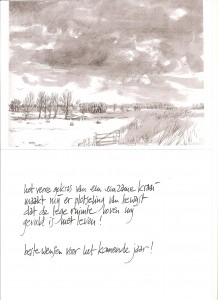 het verre gekras van een eenzame kraai
maakt mij er plotseling van bewust
dat de lege ruimte boven mij
gevuld is met leven!
beste wensen voor het komende jaar!